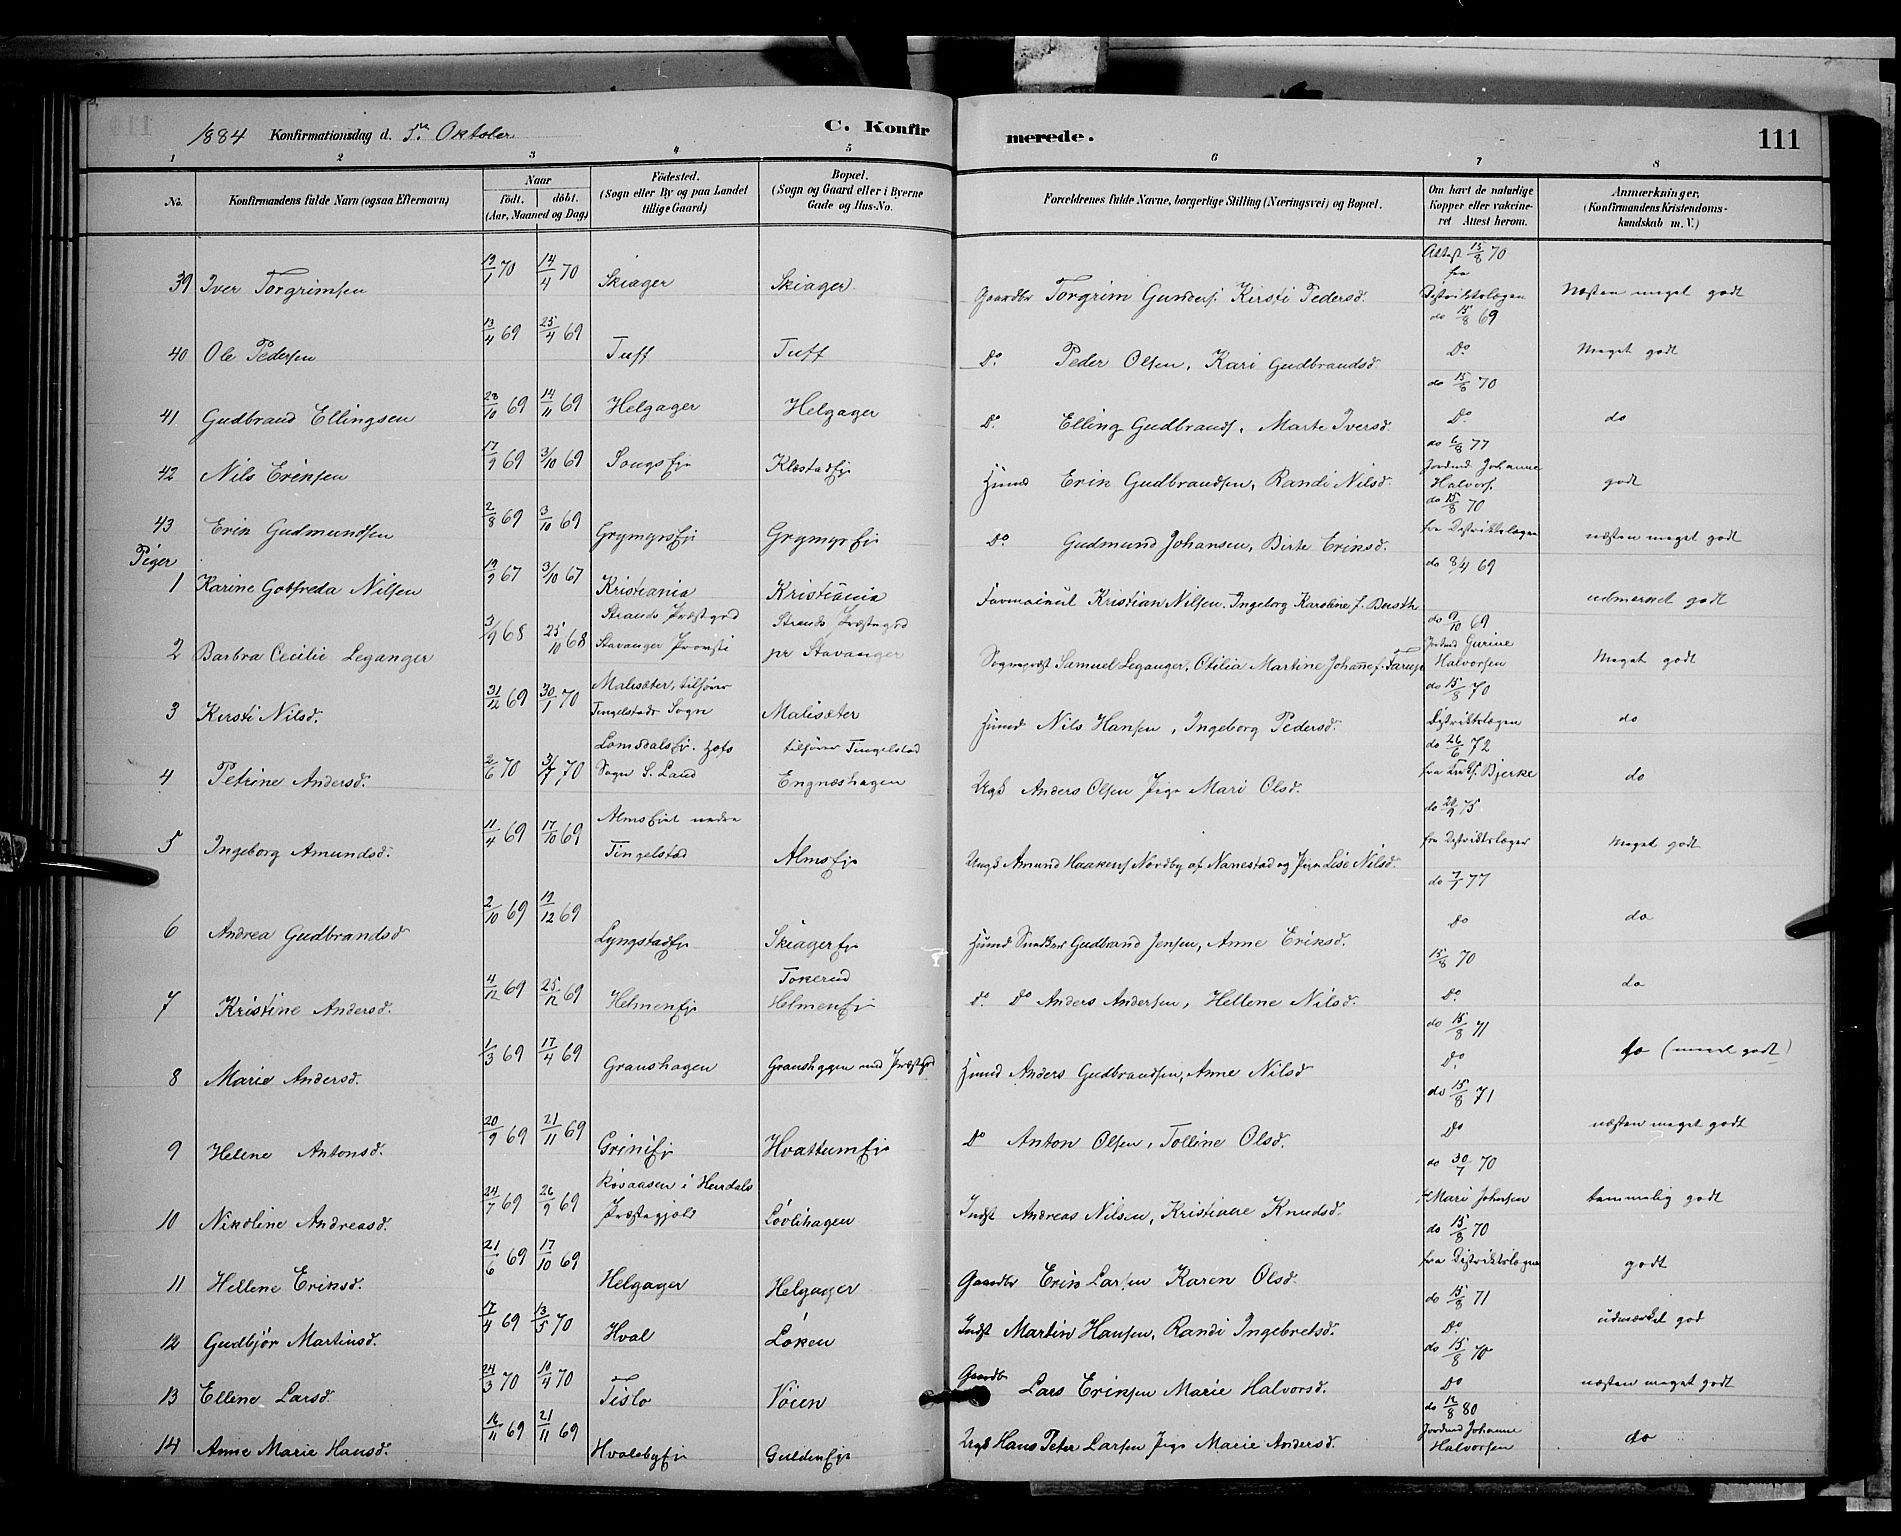 1884 Konfirmationsdag d. 5te Oktober C. Konfirmerede. 111
1 2 3 4 5 6 7 8
No. Konfirmandens fulde Navn (ogsaa Efternavn) Naar født. døbt. (Aar, Maaned og Dag) Fødested. (Sogn eller By og paa Landet tillige Gaard) Bopæl. (Sogn og Gaard eller i Byerne Gade og Hus-No. Forældrenes fulde Navne, borgerlige Stilling (Næringsvei) og Bopæl. Om havt de naturlige Kopper eller vakcineret Attest herom. Anmærkninger. (Konfirmandens Kristendomskundskab m. V.)
39 Iver Torgrimsen 19/1 70 14/4 70 Skiager Skiager Gaardbr Torgrim Gunders. Kirsti Pedersd. Attest 15/8 70 fra Distriktslægen Næsten meget godt
40 Ole Pedersen 13/4 69 25/4 69 Tuff Tuff Do. Peder Olsen, Kari Gudbrandsd. do 15/8 69 Do. Meget godt
41 Gudbrand Ellingsen 28/10 69 14/11 69 Helgager Helgager Do. Elling Gudbrands. Marte Iversd. do 15/8 70 Do. do
42 Nils Eriksen 17/9 69 3/10 69 Songsej Klæstadej Husmd Erik Gudbrandsen, Randi Nilsd. do 6/8 77 Jordmd Johanne Halvors. godt
43 Erik Gudmundsen 2/8 69 3/10 69 Grymyrsej Grymyrej Do. Gudmund Johansen, Birte Eriksd. do 15/8 70 fra Distriktslægen næsten meget godt
Piger
1 Karine Gotfreda Nilsen 19/9 67 3/10 67 Kristiania Kristiania Kristian Nilsen. Ingeborg Karoline f. do 8/4 69 udmærket godt
2 Barbra Cecilie Leganger 3/9 68 25/10 68 Strands Præstegd Stavanger Provsti Strands Præstegd pr Stavanger Sogneprest Samuel Leganger, Otilia Martine Johanne f. Farup do 9/10 69 Jordmd Gurine Halvorsen Meget godt
3 Kirsti Nilsd. 31/12 69 30/1 70 Malisæter, tilhører Tingelstads Sogn Malisæter tilhører Tingelstad Husmd Nils Hansen, Ingeborg Pedersd. do 15/8 70 Distriktslægen do
4 Petrine Andersd. 2/6 70 31/7 70 Lomsdalsej. Hofs Sogn S. Land Engnæshagen Ugk Anders Olsen Pige Mari Olsd. do 26/6 72 fra Bjerke do
5 Ingeborg Amundsd. 11/4 69 17/10 69 Almsejet nedre Tingelstad Almsej Ungk Amund Haakens Nordby af Nanestad og Pige Lise Nilsd. do 75 fra Distriktslægen Meget godt
6 Andrea Gudbrandsd 2/10 69 19/12 69 Lyngstadej Skiagerej Husmd Snedker Gudbrand Jensen, Anne Eriksd. do 7/1 77 Do do
7 Kristine Andersd. 4/12 69 25/12 69 Helmenej Tokerud Helmenej Do. Do Anders Andersen, Hellene Nilsd. 15/8 70 Do. do
8 Marie Andersd. 1/3 69 17/4 69 Granshagen Granshagen und Præstgd Husmd Anders Gudbrandsen, Anne Nilsd do 15/8 71 Do. do (meget godt)
9 Helene Antonsd. 20/9 69 21/11 69 Griniej Hvattumej Do Anton Olsen, Tolline Olsd. do 15/8 71 Do næsten meget godt
10 Nikoline Andreasd. 24/7 69 26/9 69 Røsaasen i Hurdals Præstegjeld Løvlihagen Indst Andreas Nilsen, Kristiane Knudsd. do 30/7 70 Mari Johnsen tammelig godt
11 Hellene Eriksd. 21/6 69 17/10 69 Helgager Helgager Gaardbr Erik Larsen Karen Olsd. do 15/8 70 fra Distriktslægen godt
12 Gudbjør Martinsd. 17/4 69 13/5 70 Hval Løken Indst Martin Hansen, Randi Ingebretsd. do 15/8 71 Do. udmærket god
13 Elline Larsd. 24/3 70 10/4 70 Tislo Vøien Gaardbr Lars Eriksen Marie Halvorsd. do 15/8 70 Do næsten meget godt
14 Anne Marie Hansd. 16/11 69 21/11 69 Hvalebyej Guldenej Ugk Hans Peter Larsen Pige Marie Andersd. do 12/8 80 Jordmd Johanne Halvorsen do